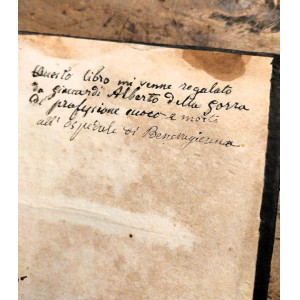 Questo libro mi venne regalato
da giaccardi Alberto della gorra
di professione cuoco e morto
all'Ospedale di